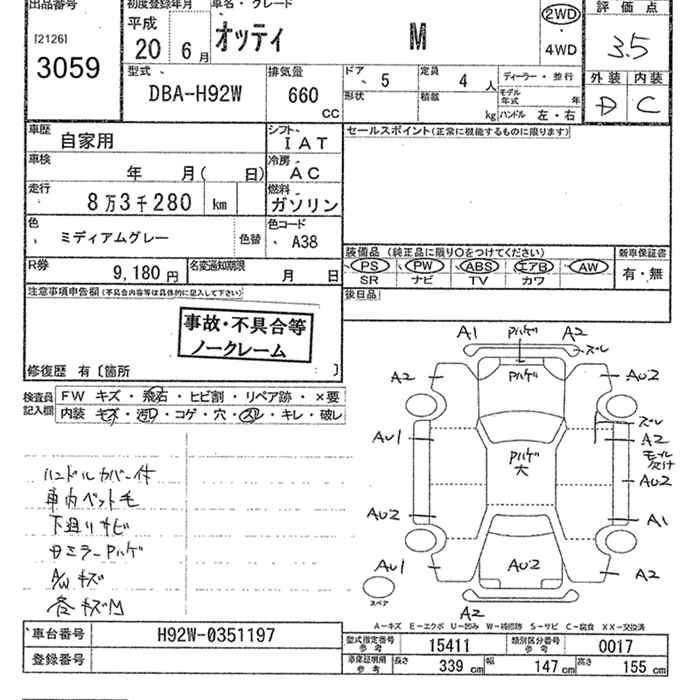 出品番号 初度登録年月 車名・グレード 2WD 評価点
[2126] 平成 オッティ M ・ 3.5
3059 20 年 6 月 4WD
型式 排気量 ドア 5 定員 4 人 ディーラー・並行 外装 内装
DBA-H92W 660 CC 形状 積載 kg モデル年式 年 D C
ハンドル 左・右
車歴 自家用 シフト IAT セールスポイント(正常に機能するものに限ります)
車検 年 月( 日) 冷房 AC
走行 8万3千280 km 燃料 ガソリン
色 ミディアムグレー 色替 色コード A38
装備品 (純正品に限り○をつけてください) 新車保証書
R券 9,180 円 名変通知期限 月 日 PS PW ABS エアB AW 有・無
SR ナビ TV カワ
注意事項申告欄(不具合内容等は具体的に記入して下さい) 後日品
事故・不具合等
ノークレーム
修復歴 有〔箇所 〕
検査員記入欄 FW キズ・飛石・ヒビ割・リペア跡・×要
内装・キズ・汚れ・コゲ・穴・スレ・キレ・破レ
A1 Pハゲ A2
ズレ
A2 Pハゲ AU2
ズレ
AU1 A2
Pハゲ モール欠け
大 AU2
AU2 A1
AU1 AU2 A2
スペア
A2
ハンドルカバー付
車内ペット毛
下廻りサビ
ミラーPハゲ
A/Wキズ
各キズM
A-キズ E-エクボ U-凹み W-補修跡 S-サビ C-腐食 XX-交換済
車台番号 H92W-0351197 型式指定番号 参考 15411 類別区分番号 参考 0017
登録番号 車庫証明用 参考 長さ 339 cm 幅 147 cm 高さ 155 cm